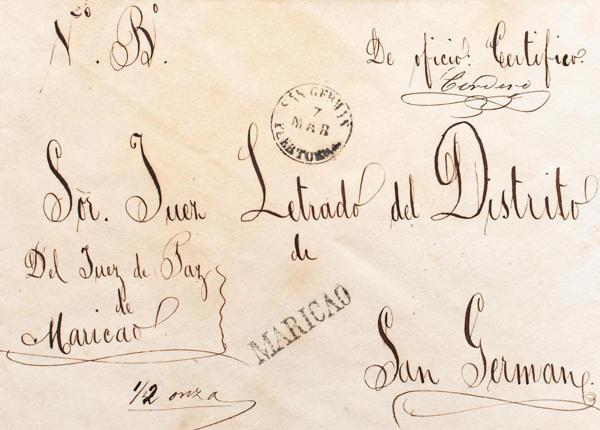 Nco. Bo.
De oficio. Certifico.
Cordero
SAN GERMAN
7
MAR
Sōr. Juez Letrado del Distrito
de
San German
Del Juez de Paz
de
Maricao
MARICAO
1/2 onza